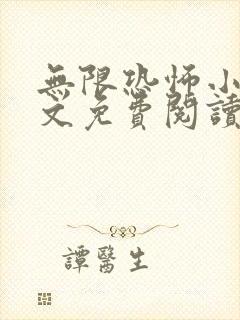 無限恐怖小
文免費閱讀
譚醫生